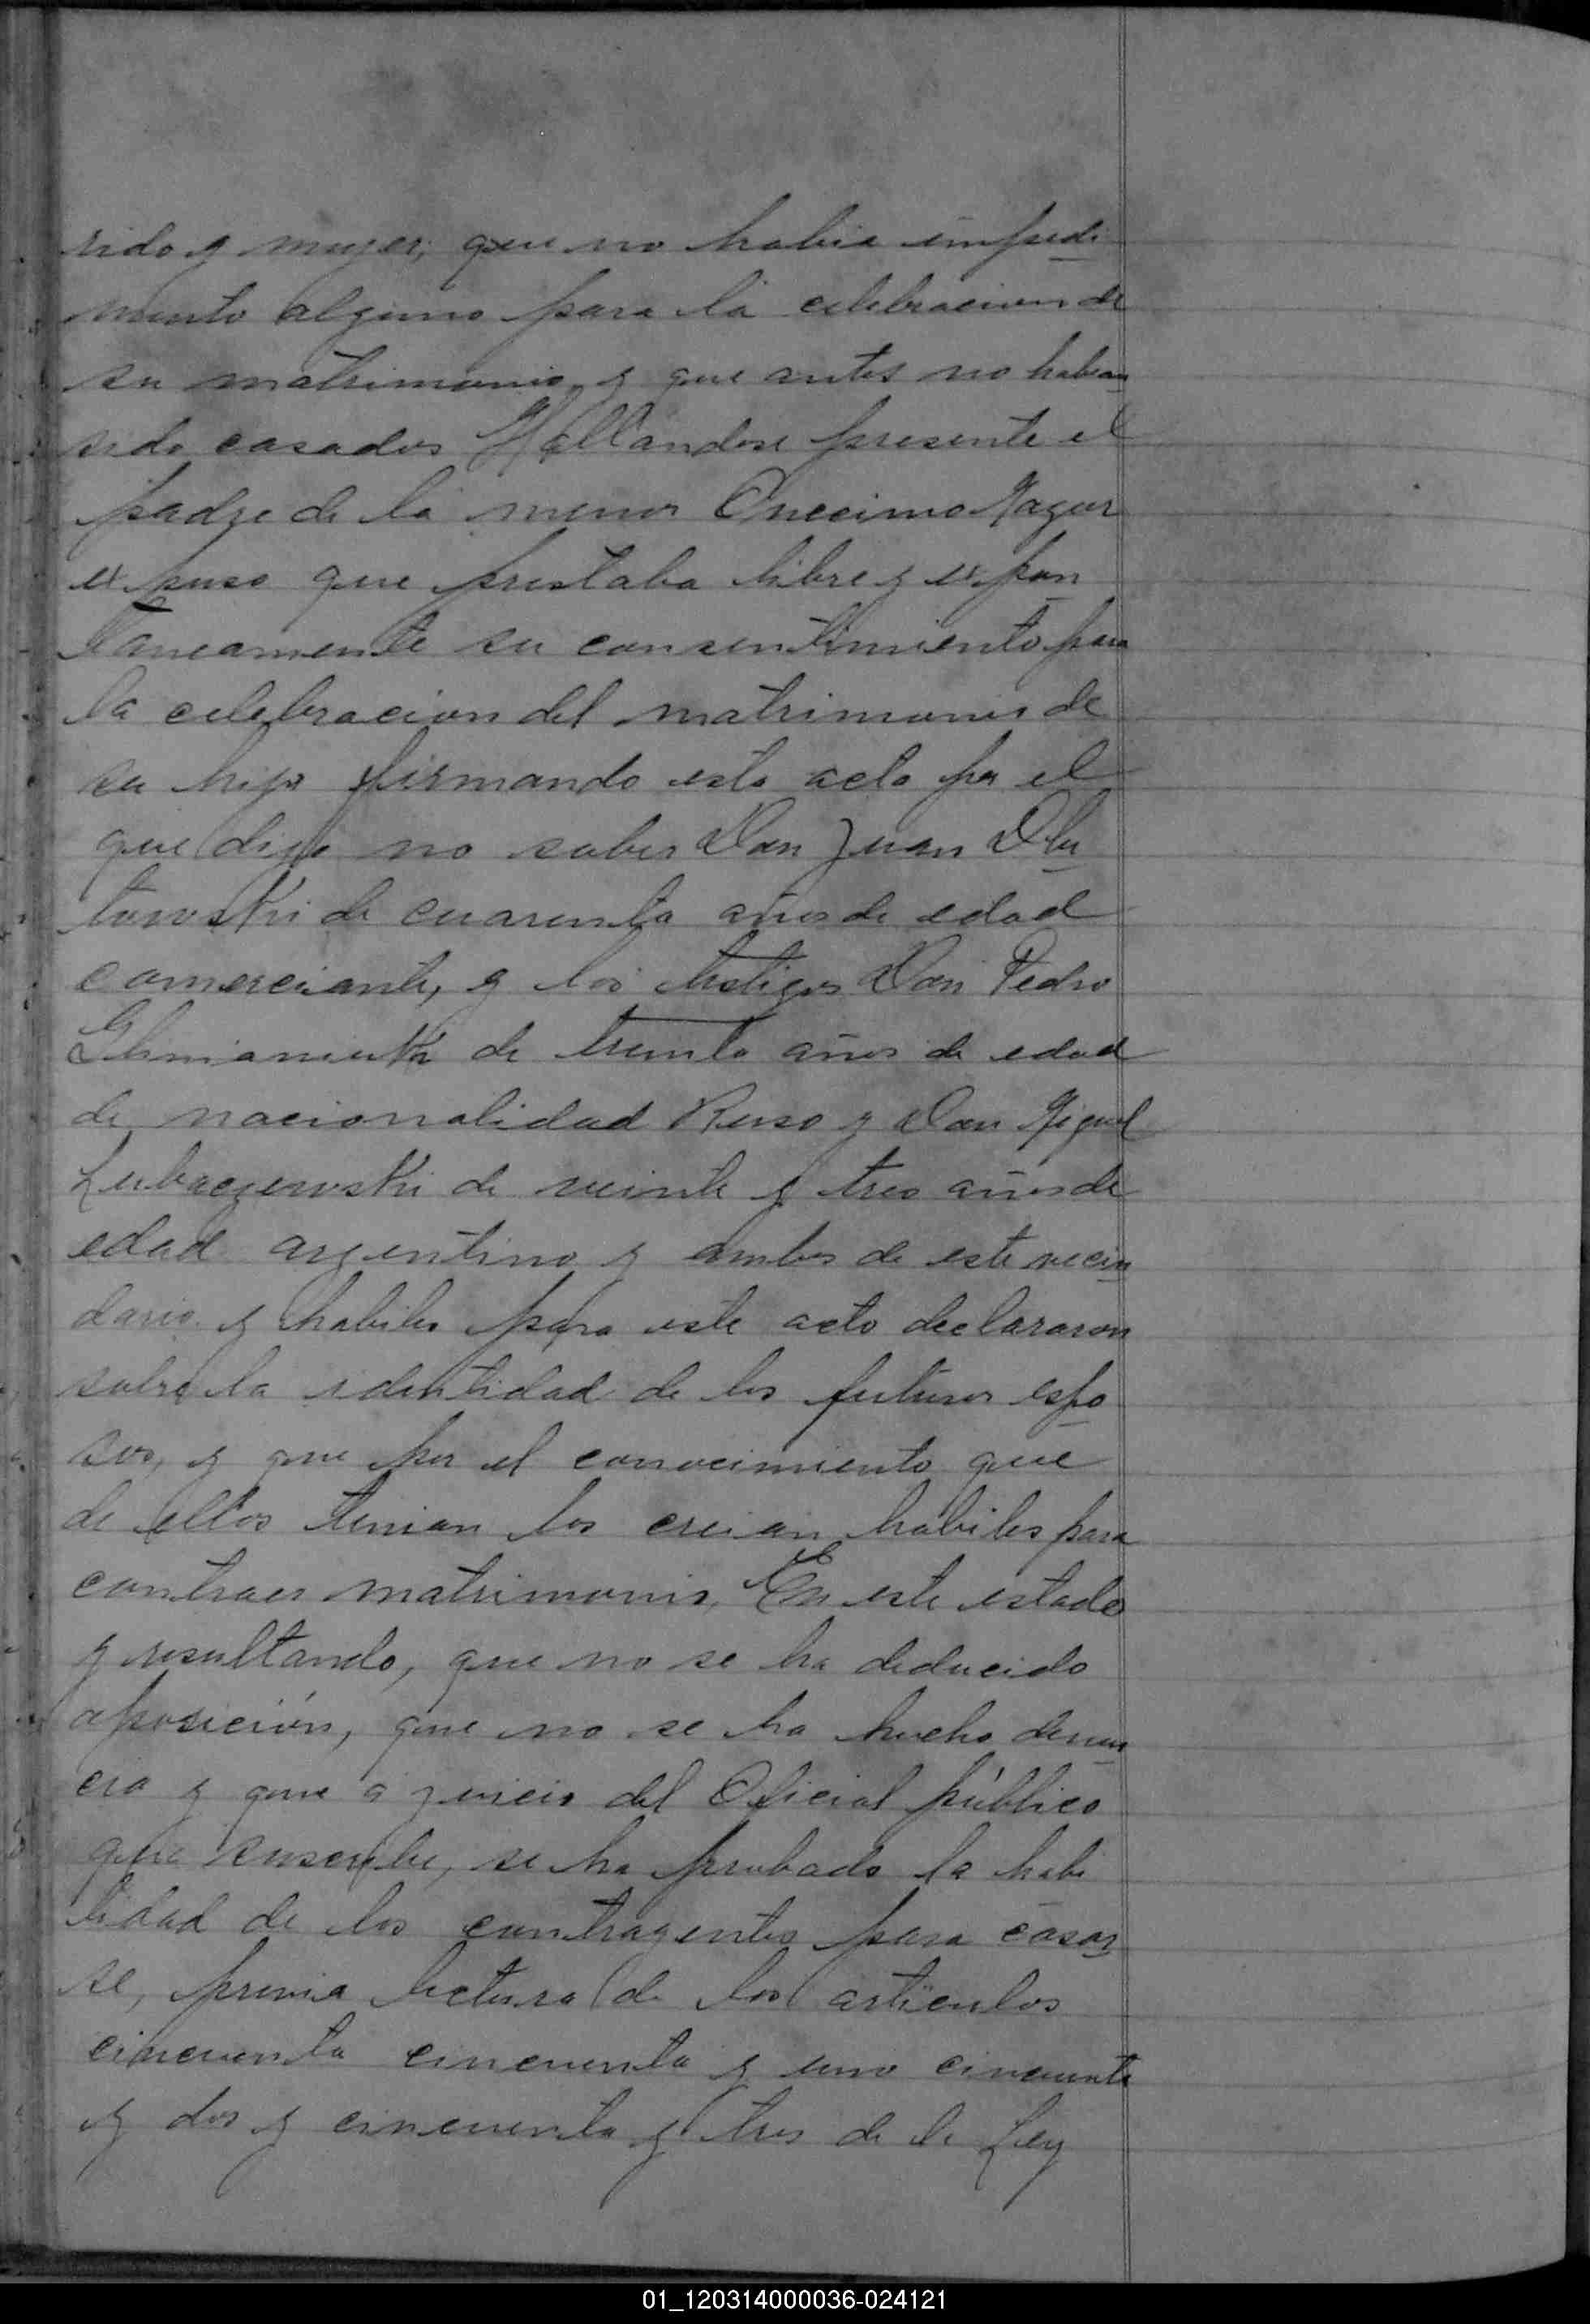 rido y mujer; que no habia impedi
mento alguno para la celebracion de
su matrimonio, y que antes no habian
sido casados Hallandose presente el
padre de la menor Onecimo Mazur
expuso que prestaba libre y expon
taneamente su consentimiento para
la celebracion del matrimonio de
su hija firmando esta acta por el
que dijo no saber Don Juan Dlu
towski de cuarenta años de edad
comerciante, y los testigos Don Pedro
de treinta años de edad
de nacionalidad Ruso y Don Miguel
Lubaczewski de veinte y tres años de
edad argentino y ambos de este vecin
dario y habiles para este acto declararon
sobre la identidad de los futuros espo
sos, y que por el conocimiento que
de ellos tenian los creian habiles para
contraer matrimonio, En este estado
y resultando, que no se ha deducido
oposición, que no se ha hecho denun
cia y que á juicio del Oficial público
que suscribe, se ha probado la habi
lidad de los contrayentes para casar
se, previa lectura de los articulos
cincuenta cincuenta y uno cincuenta
y dos y cincuenta y tres de la Ley
01_120314000036-024121